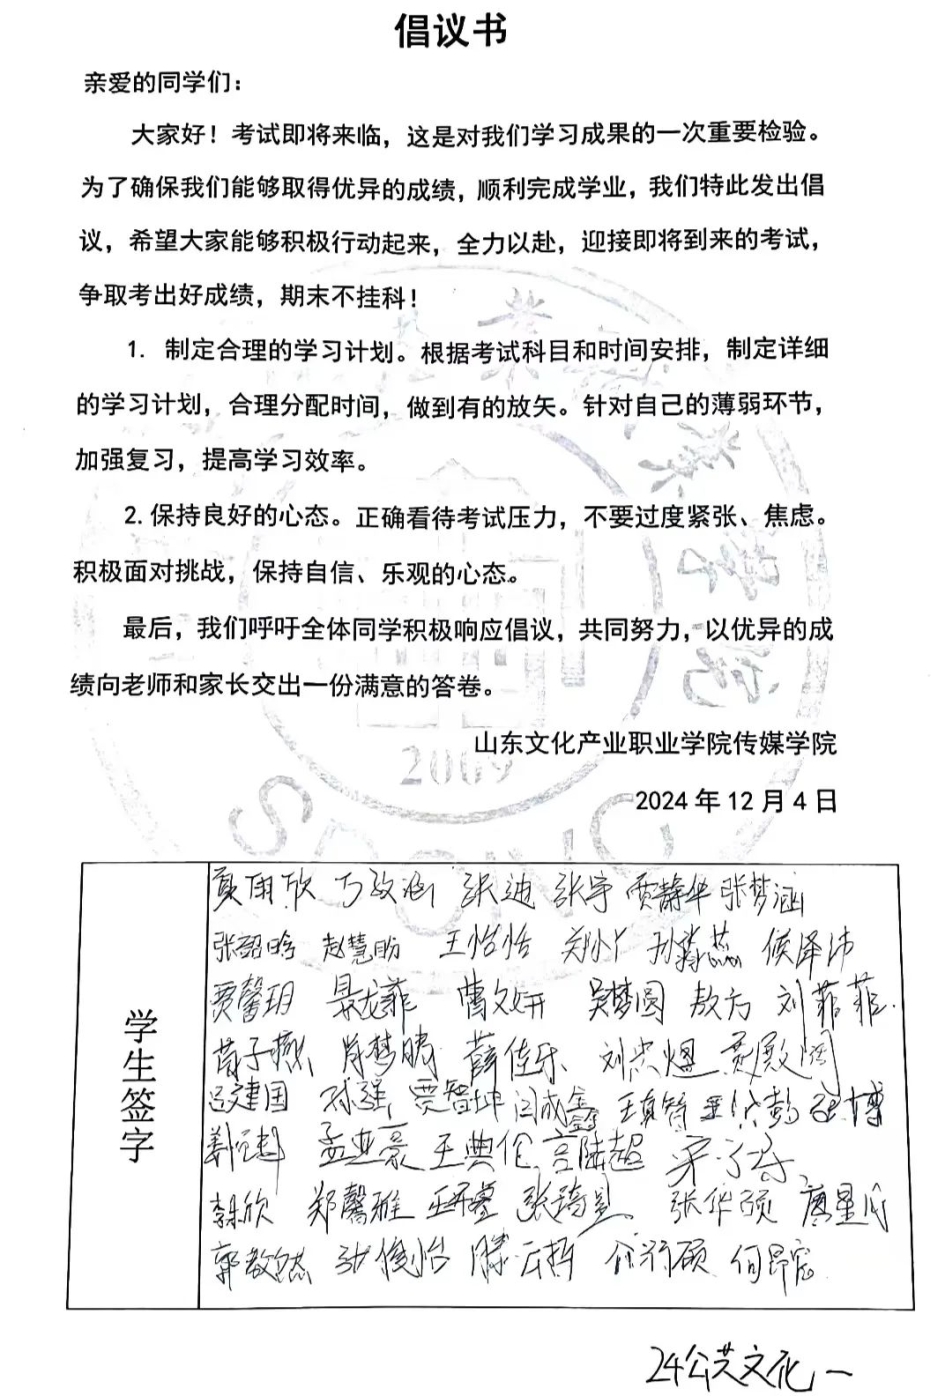 倡议书
亲爱的同学们：
大家好！考试即将来临，这是对我们学习成果的一次重要检验。
为了确保我们能够取得优异的成绩，顺利完成学业，我们特此发出倡
议，希望大家能够积极行动起来，全力以赴，迎接即将到来的考试，
争取考出好成绩，期末不挂科！
1. 制定合理的学习计划。根据考试科目和时间安排，制定详细
的学习计划，合理分配时间，做到有的放矢。针对自己的薄弱环节，
加强复习，提高学习效率。
2.保持良好的心态。正确看待考试压力，不要过度紧张、焦虑。
积极面对挑战，保持自信、乐观的心态。
最后，我们呼吁全体同学积极响应倡议，共同努力，以优异的成
绩向老师和家长交出一份满意的答卷。
2009
山东文化产业职业学院传媒学院
2024年12月4日
学生签字
张迪 张宇 贾静华 张梦涵
赵慧盼 王怡怡 侯泽沛
贾馨玥 曹文妍 吴梦圆 敖方 刘菲菲
肖梦晴 薛佳乐
吕建国 孙强 贾智坤 闫成鑫 王真智
孟亚豪 王典伦
郑馨雅 张华硕
张俊怡 滕云哲
24公共文化一